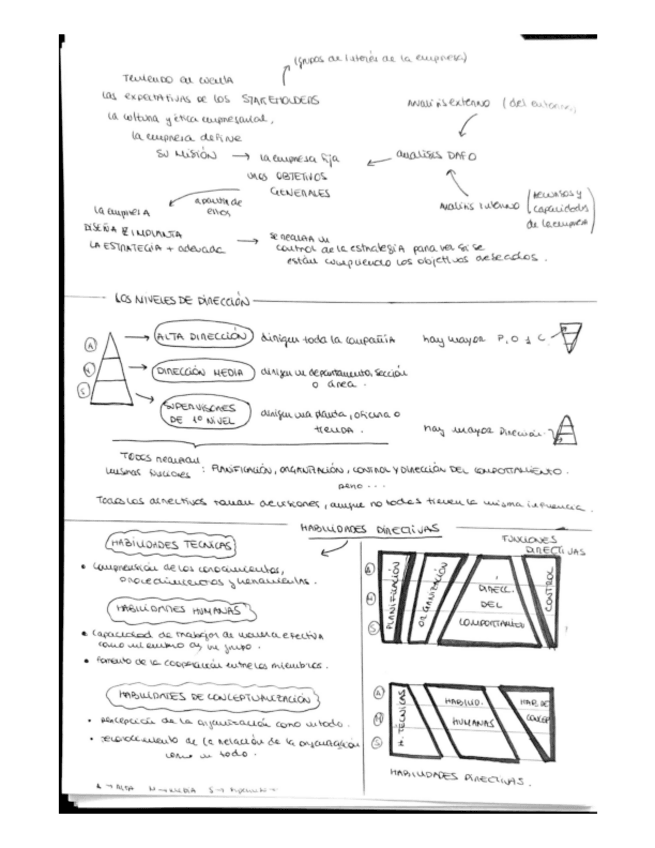 (grupos de interés de la empresa)
TENIENDO EN CUENTA
LAS EXPECTATIVAS DE LOS STAKEHOLDERS
La cultura y ética empresarial,
la empresa define
SU MISIÓN → la empresa fija
UNOS OBJETIVOS
GENERALES
ANALISIS EXTERNO (del entorno)
ANALISIS DAFO
ANALISIS INTERNO (recursos y
capacidades
de la empresa)
a partir de
ellos
la empresa
DISEÑA E IMPLANTA
LA ESTRATEGIA + adecuada → se realiza un
control de la estrategia para ver si se
están cumpliendo los objetivos deseados.
LOS NIVELES DE DIRECCIÓN
A
M
S
ALTA DIRECCIÓN dirigen toda la compañía hay mayor P, O y C.
DIRECCIÓN MEDIA dirigen un departamento, sección
o área.
SUPERVISORES
DE 1º NIVEL dirigen una planta, oficina o
tienda. hay mayor Dirección.
TODOS REALIZAN
mismas funciones : PLANIFICACIÓN, ORGANIZACIÓN, CONTROL Y DIRECCIÓN DEL COMPORTAMIENTO.
pero ...
Todos los directivos toman decisiones, aunque no todos tienen la misma influencia.
HABILIDADES DIRECTIVAS
HABILIDADES TECNICAS
• Comprensión de los conocimientos,
procedimientos y herramientas.
HABILIDADES HUMANAS
• Capacidad de trabajar de manera efectiva
como miembro de un grupo.
• Fomento de la cooperación entre los miembros.
HABILIDADES DE CONCEPTUALIZACIÓN
• percepción de la organización como un todo.
• reconocimiento de la relación de la organización
como un todo.
A → ALTA M → MEDIA S →
FUNCIONES
DIRECTIVAS
A
M
S
PLANIFICACIÓN
ORGANIZACIÓN
DIRECC.
DEL
CONTROL
A
M
S
H. TÉCNICAS
HABILID.
HUMANAS
HAB. DE
CONCEP
HABILIDADES DIRECTIVAS.